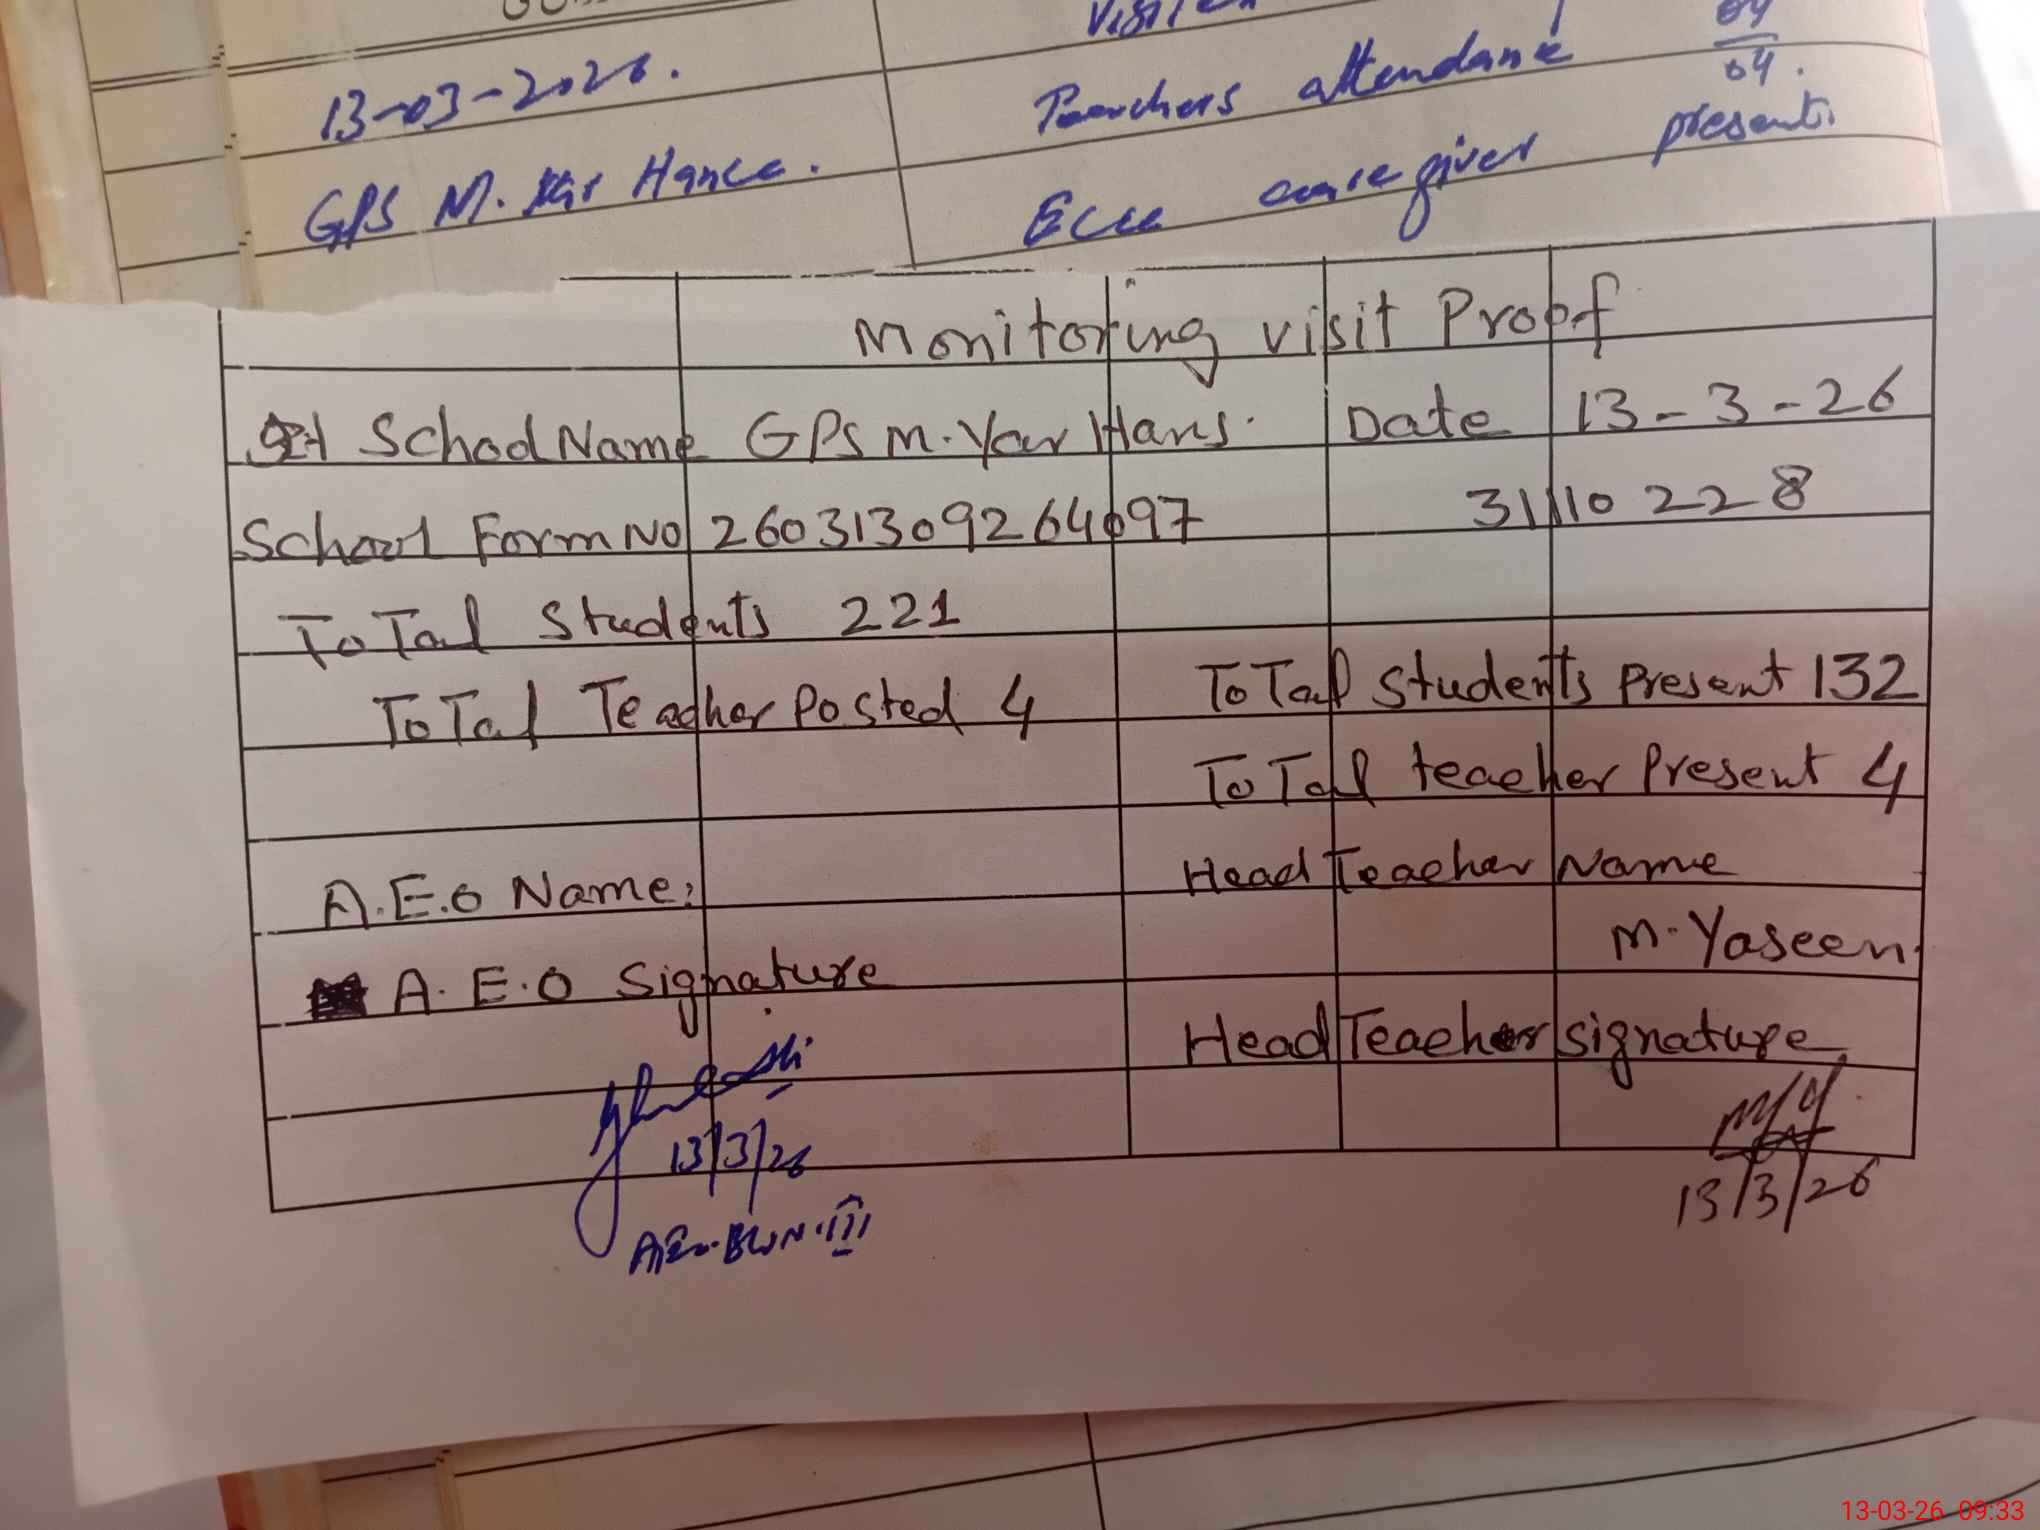 13-03-2026.
GPS M. Yar Hance.
Teachers attendance 04/04.
Ecce caregiver present.
Monitoring visit Proof
School Name GPS M. Yar Hans. Date 13-3-26
School Form No 26031309264097 31110228
ToTal Students 221
ToTal Students Present 132
ToTal Teacher Posted 4
ToTal teacher Present 4
A.E.O Name:
Head Teacher Name
M. Yaseen.
A.E.O Signature
Head Teacher signature
13/3/26
AEO-BWN-III
13/3/26
13-03-26 09:33